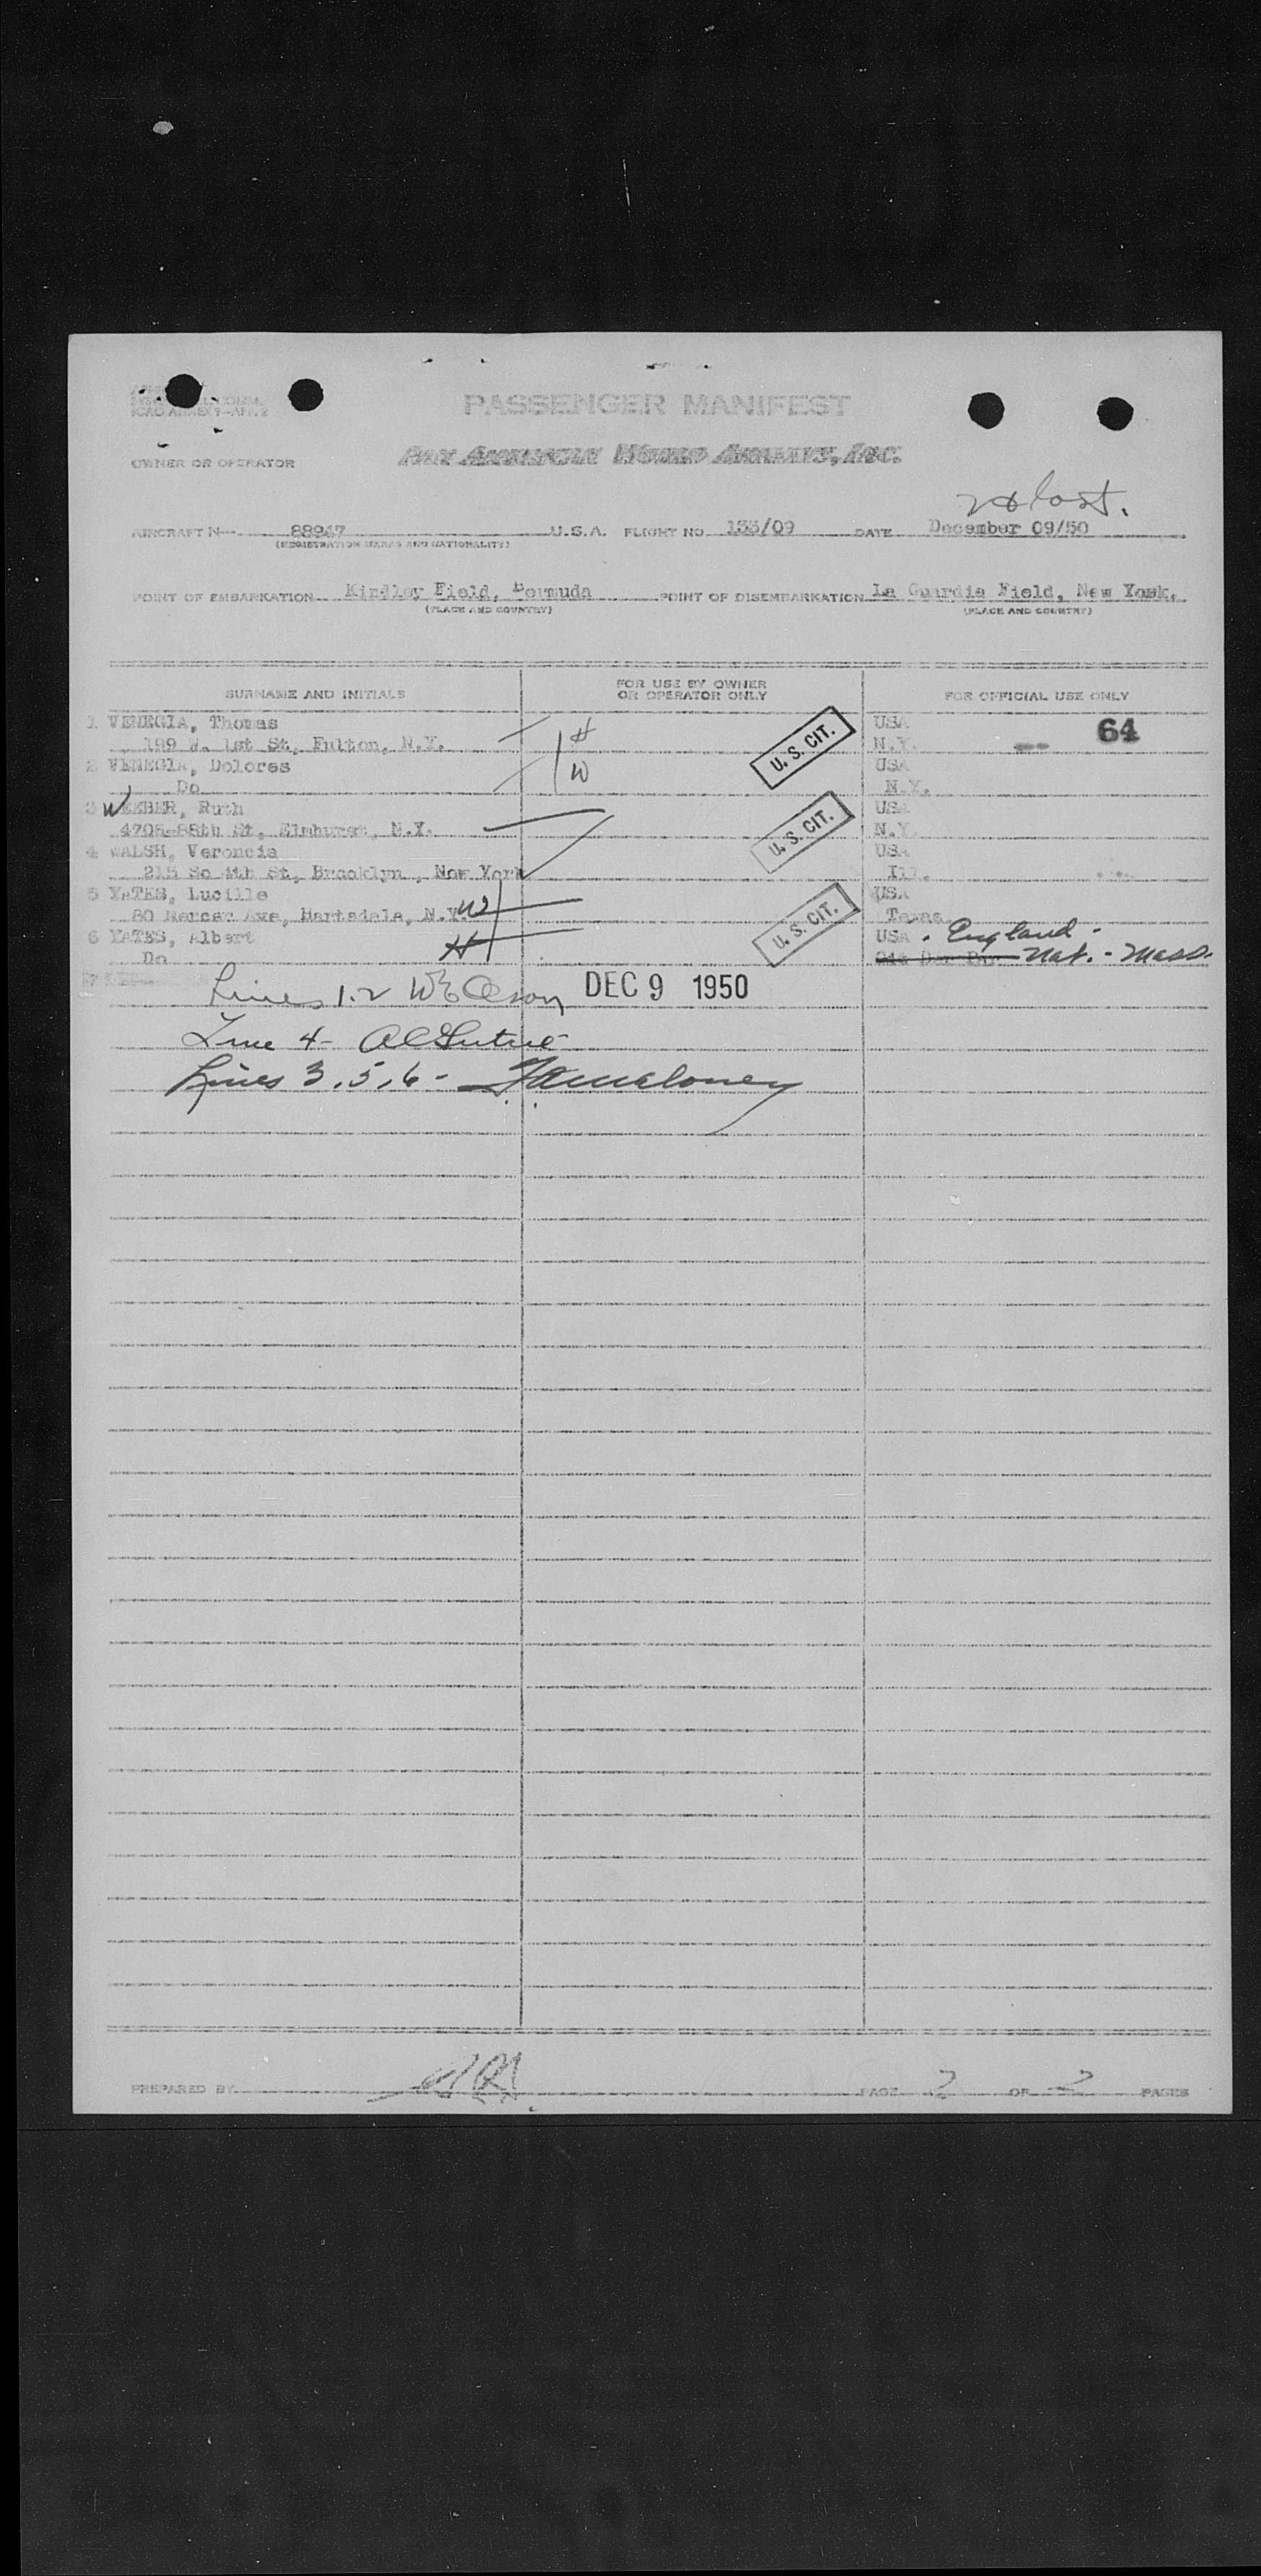 ICAO ANNEX 9-APP. 2
PASSENGER MANIFEST
OWNER OR OPERATOR
PAN AMERICAN WORLD AIRWAYS, INC.
AIRCRAFT N 88947 U.S.A. FLIGHT NO. 133/09 DATE December 09/50
(REGISTRATION MARKS AND NATIONALITY)
POINT OF EMBARKATION Kindley Field, Bermuda POINT OF DISEMBARKATION La Guardia Field, New York.
(PLACE AND COUNTRY) (PLACE AND COUNTRY)
SURNAME AND INITIALS FOR USE BY OWNER OR OPERATOR ONLY FOR OFFICIAL USE ONLY
1 VENEGIA, Thomas H USA 64
199 W. 1st St, Fulton, N.Y. U. S. CIT. N.Y.
2 VENEGIA, Dolores W USA
Do N.Y.
3 WEEBER, Ruth USA
4708-88th St, Elmhurst, N.Y. U. S. CIT. N.Y.
4 WALSH, Veroncia USA
215 So 4th St, Brooklyn, New York Ill.
5 YATES, Lucille USA
80 Mercer Ave, Hartsdale, N.Y. W U. S. CIT. Texas
6 YATES, Albert USA. England-
Do H Nat. - Mass.
7
Lines 1.2 DEC 9 1950
Line 4-
Lines 3, 5, 6-
PREPARED BY PAGE 2 OF 2 PAGES